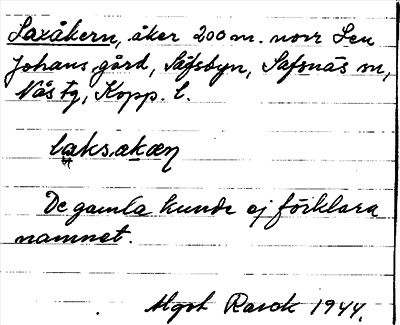 Laxåkern, åker 200 m. norr Leu
Johans gård, Säfsbyn, Säfsnäs m,
Näs tg, Kopp. l.
laksakæn
De gamla kunde ej förklara
namnet.
Algot Rasck 1944.